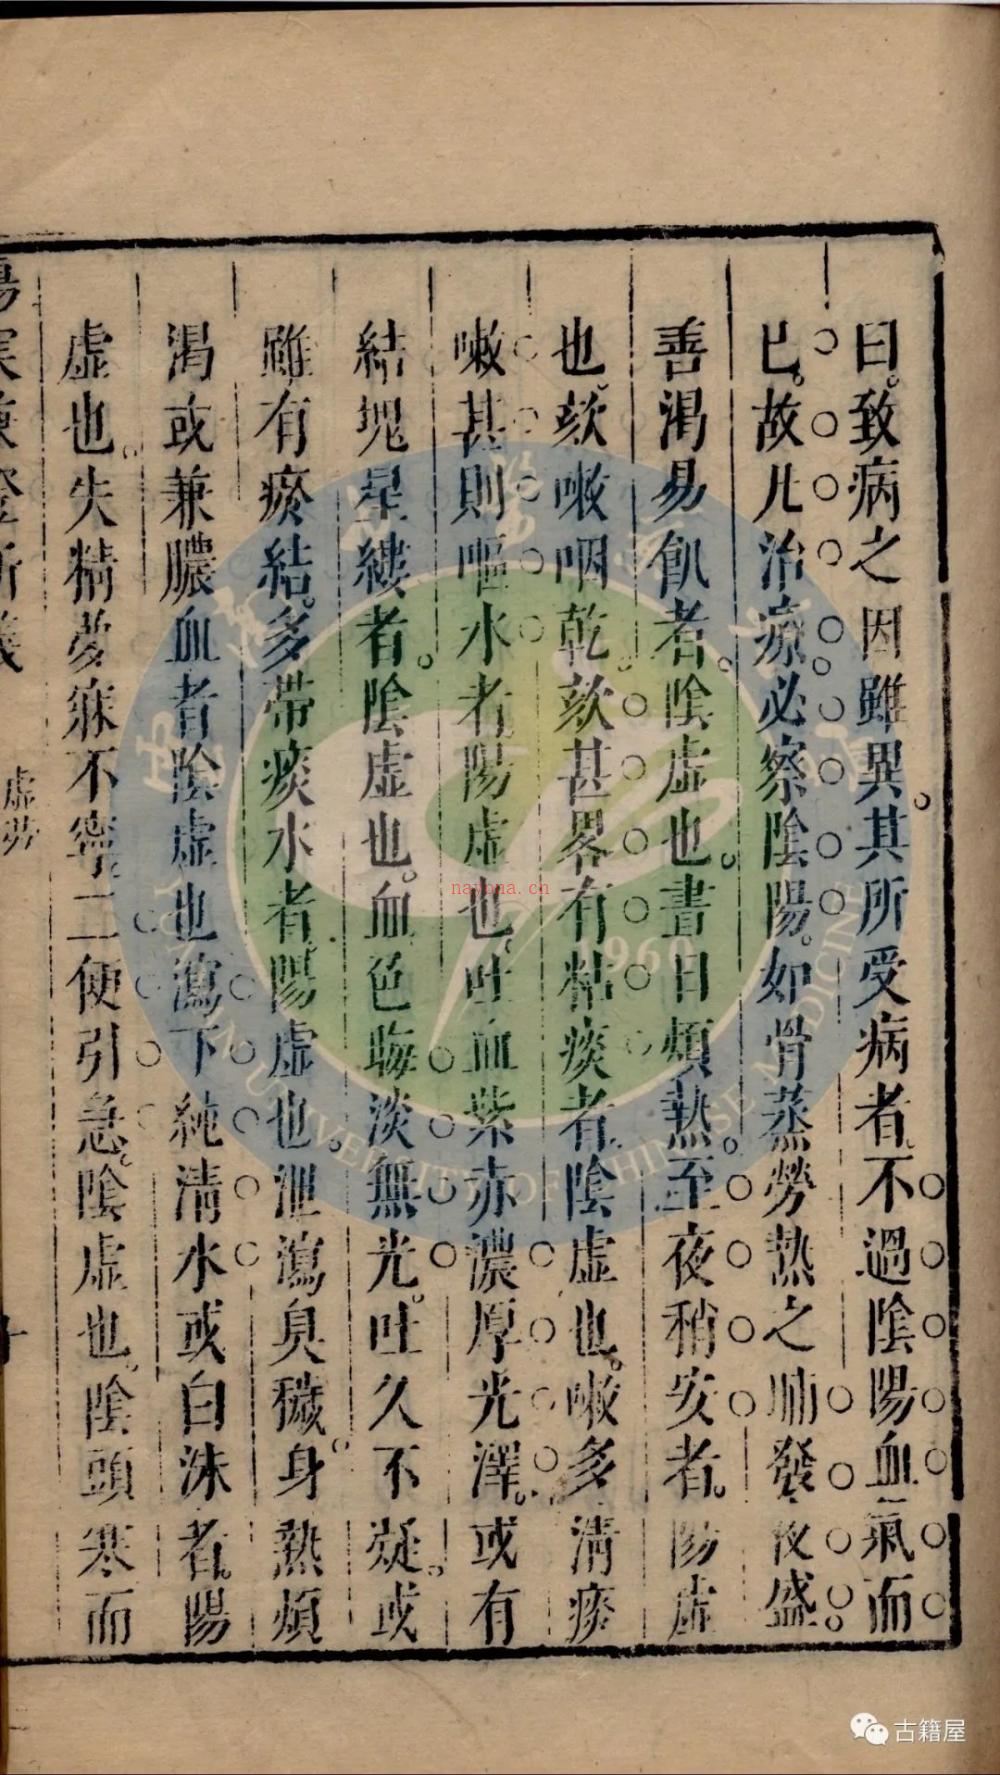 曰致病之因雖異其所受病者不過陰陽血氣而
已故凡治療必察陰陽如骨蒸勞熱之晡發夜盛
善渴易飢者陰虛也晝日煩熱至夜稍安者陽虛
也欬嗽咽乾欬甚畧有粘痰者陰虛也嗽多清痰
嗽甚則嘔水者陽虛也吐血紫赤濃厚光澤或有
結塊星縷者陰虛也血色晦淡無光吐久不凝或
雖有瘀結多帶痰水者陽虛也泄瀉臭穢身熱煩
渴或兼膿血者陰虛也瀉下純清水或白沫者陽
虛也失精夢寐不寧二便引急陰虛也陰頭寒而
虛勞
古籍屋
nayona.cn
1960
UNIVERSITY OF CHINESE MEDICINE